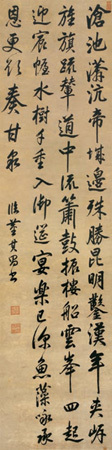 滄池漭沆帝城邊殊勝昆明鑿漢年夾岸
旌旗疏輦道中流簫鼓振樓船雲峯四起
迎宸幄水樹千重入御筵宴樂已深魚藻詠承
恩更欲奏甘泉
董其昌書